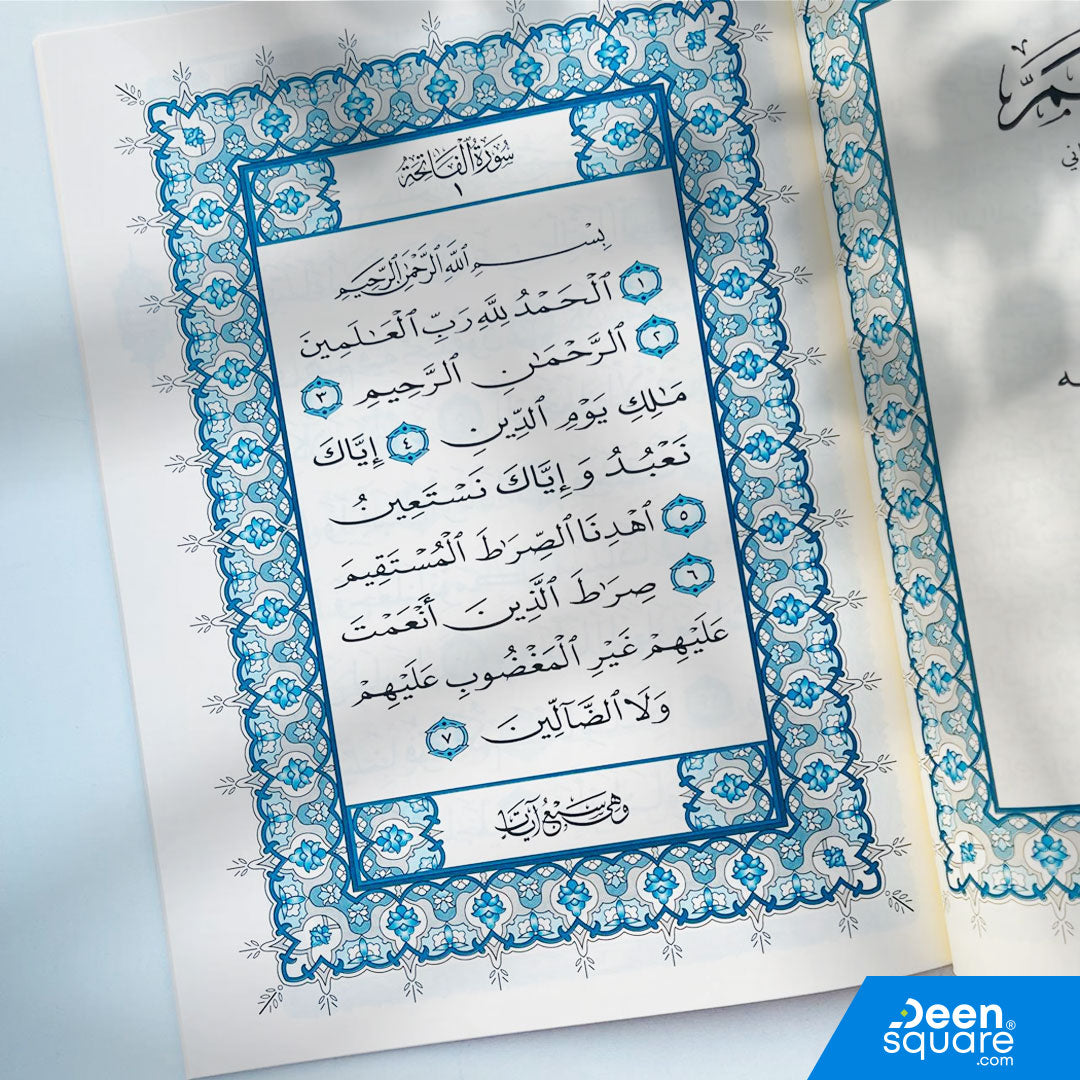 سُورَةُ ٱلْفَاتِحَةِ
١
بِسْمِ ٱللَّهِ ٱلرَّحْمَٰنِ ٱلرَّحِيمِ
١ ٱلْحَمْدُ لِلَّهِ رَبِّ ٱلْعَـٰلَمِينَ
٢ ٱلرَّحْمَـٰنِ ٱلرَّحِيمِ ٣
مَـٰلِكِ يَوْمِ ٱلدِّينِ ٤ إِيَّاكَ
نَعْبُدُ وَإِيَّاكَ نَسْتَعِينُ
٥ ٱهْدِنَا ٱلصِّرَٰطَ ٱلْمُسْتَقِيمَ
٦ صِرَٰطَ ٱلَّذِينَ أَنْعَمْتَ
عَلَيْهِمْ غَيْرِ ٱلْمَغْضُوبِ عَلَيْهِمْ
وَلَا ٱلضَّآلِّينَ ٧
وَهِيَ سَبْعُ آيَات
Deen
square®
.com